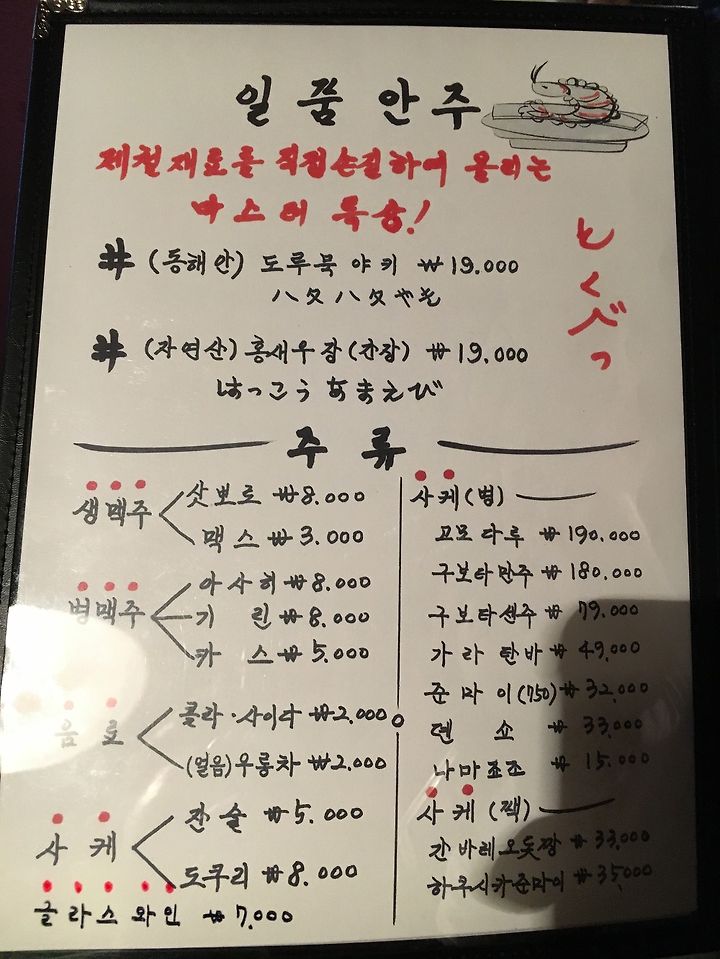 일품 안주
제철재료를 직접손질하여 올리는
마스터 특송!
とくべつ
# (동해안) 도루묵 야키 ₩19.000
ハタハタやき
# (자연산) 홍새우장(간장) ₩19,000
はっこうあまえび
주류
생맥주
삿뽀로 ₩8.000
맥스 ₩3.000
병맥주
아사히 ₩8.000
기린 ₩8.000
카스 ₩5.000
음료
콜라·사이다 ₩2.000
(얼음)우롱차 ₩2.000
사케
잔술 ₩5.000
도쿠리 ₩8.000
글라스와인 ₩7.000
사케(병)
고모다루 ₩190.000
구보타만주 ₩180.000
구보타센주 ₩79.000
가라탄바 ₩49,000
준마이(750) ₩32,000
덴쇼 ₩33,000
나마죠조 ₩15.000
사케(팩)
간바레오돗짱 ₩33,000
하쿠시카준마이 ₩35,000